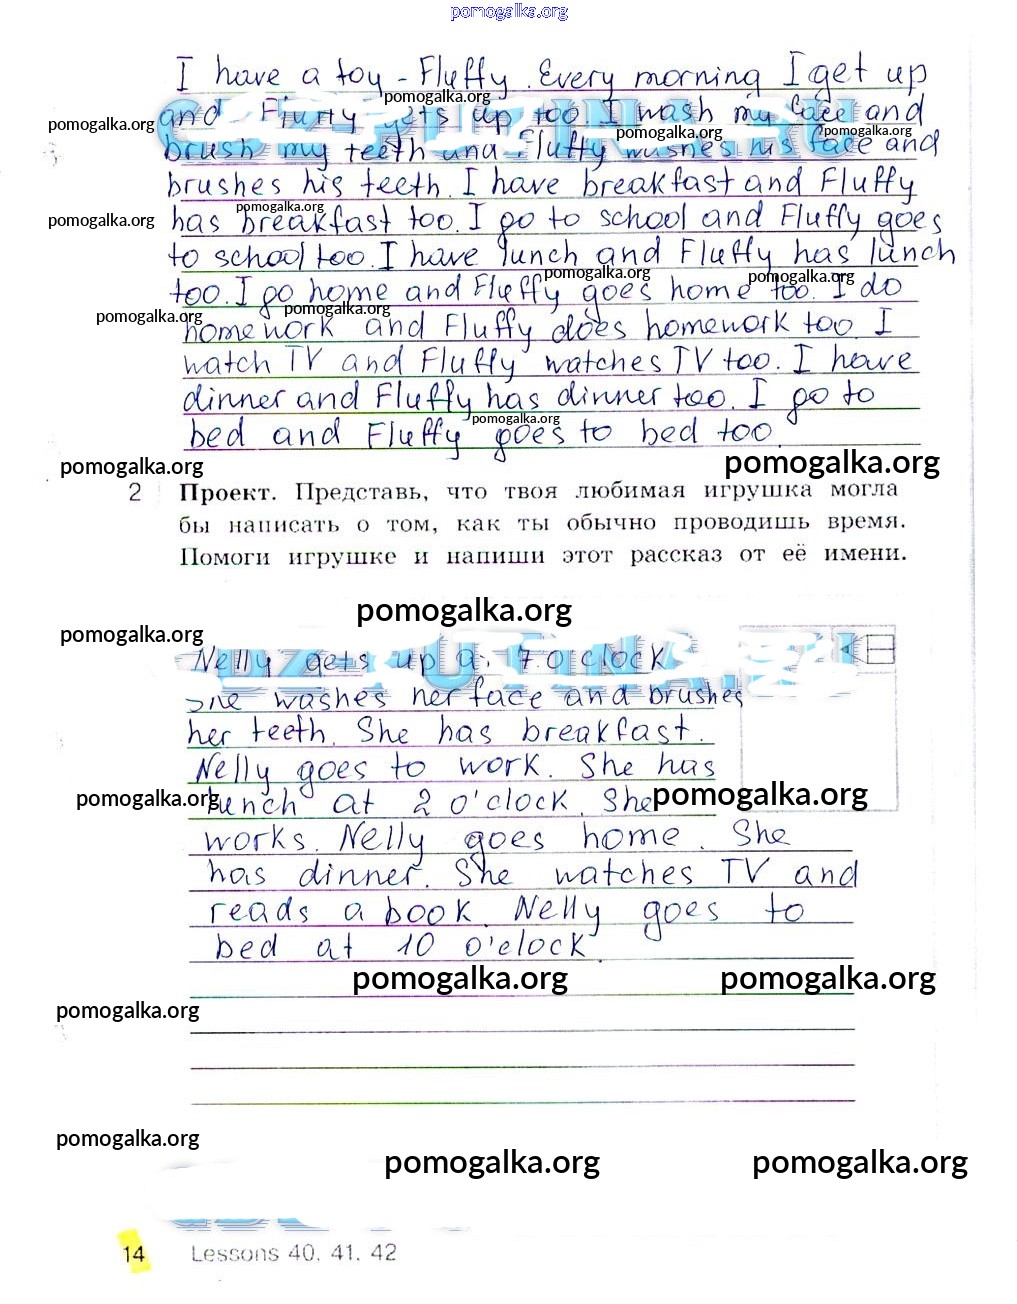 pomogalka.org
I have a toy - Fluffy. Every morning I get up
pomogalka.org
and Fluffy gets up too. I wash my face and
pomogalka.org
pomogalka.org
pomogalka.org
brush my teeth and Fluffy washes his face and
brushes his teeth. I have breakfast and Fluffy
pomogalka.org
pomogalka.org
has breakfast too. I go to school and Fluffy goes
to school too. I have lunch and Fluffy has lunch
pomogalka.org
pomogalka.org
too. I go home and Fluffy goes home too. I do
pomogalka.org
pomogalka.org
homework and Fluffy does homework too. I
watch TV and Fluffy watches TV too. I have
dinner and Fluffy has dinner too. I go to
pomogalka.org
bed and Fluffy goes to bed too.
pomogalka.org
pomogalka.org
2 Проект. Представь, что твоя любимая игрушка могла
бы написать о том, как ты обычно проводишь время.
Помоги игрушке и напиши этот рассказ от её имени.
pomogalka.org
pomogalka.org
Nelly gets up at 7 o'clock
She washes her face and brushes
her teeth. She has breakfast.
Nelly goes to work. She has
pomogalka.org
lunch at 2 o'clock. She
pomogalka.org
works. Nelly goes home. She
has dinner. She watches TV and
reads a book. Nelly goes to
bed at 10 o'clock.
pomogalka.org
pomogalka.org
pomogalka.org
pomogalka.org
pomogalka.org
pomogalka.org
14 Lessons 40, 41, 42